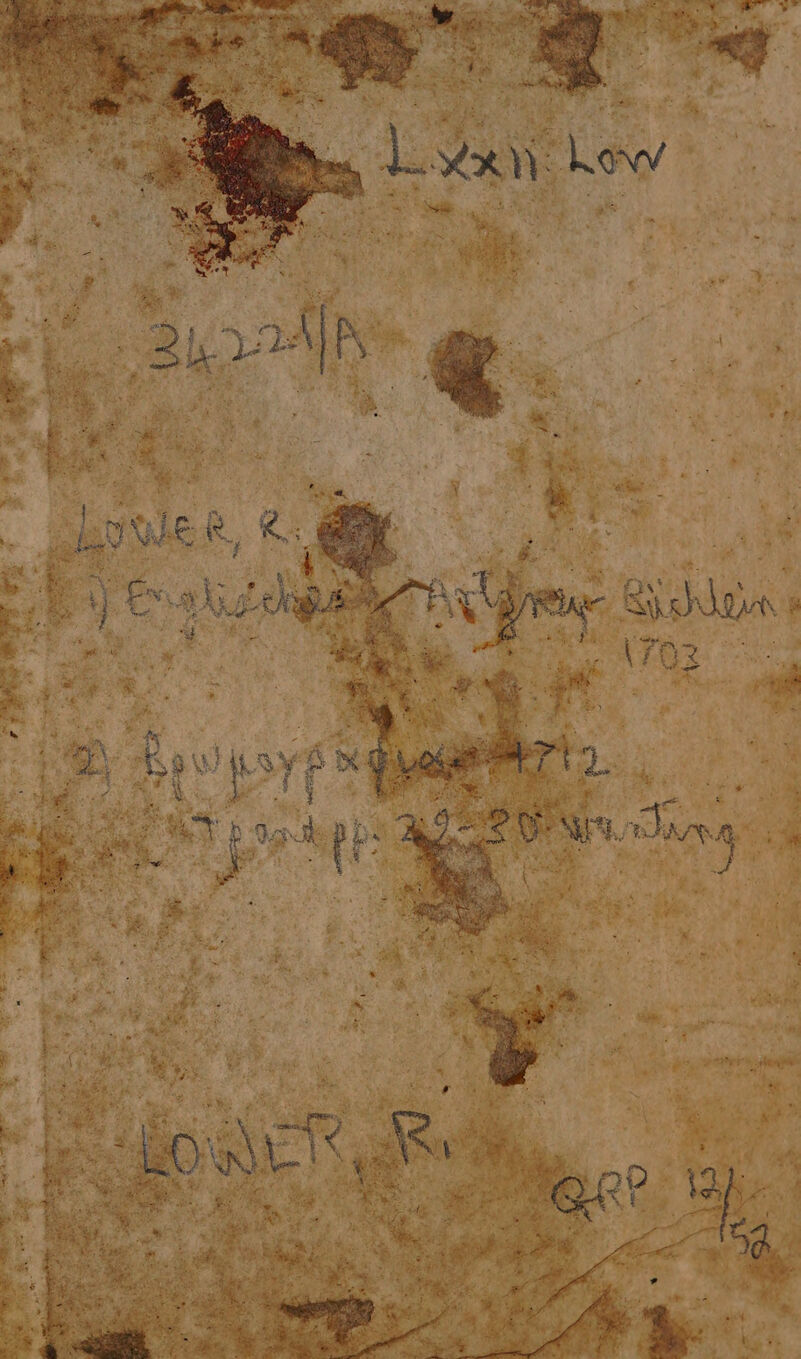 Lxxii Low
34221/A
LOWER, R.
1) Englisches Artzney Büchlein
1703
2) 1712
Tp and pp. 29-30 wanting
LOWER, R.
QRP 12/52